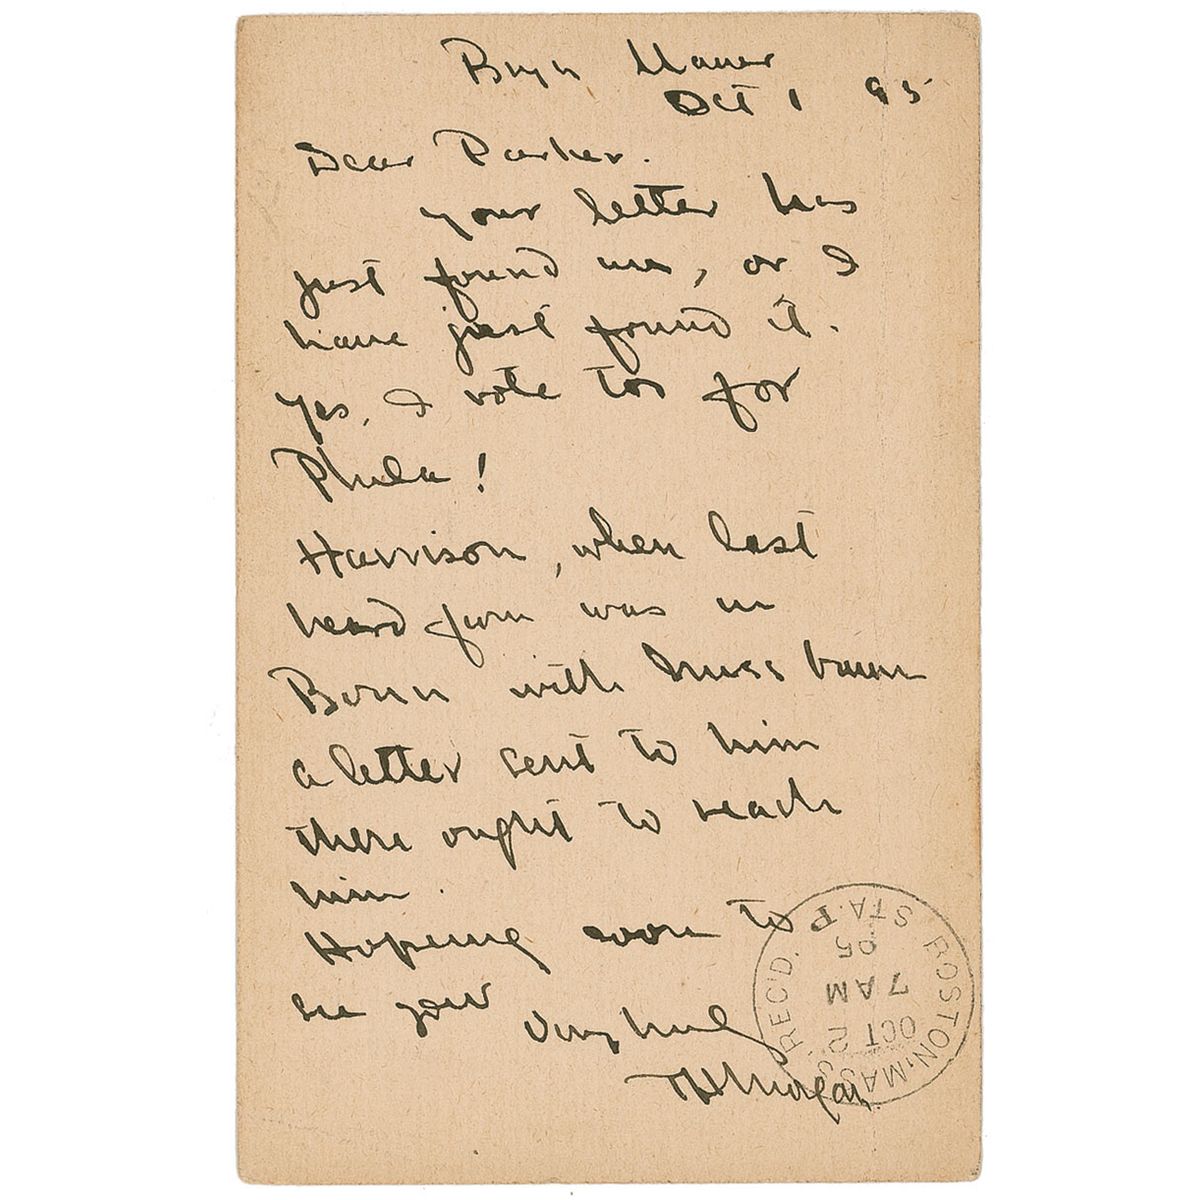 Bryn Mawr
Oct 1 95
Dear Parker.
Your letter has
just found me, or I
have just found it.
Yes, I vote too for
Phila!
Harrison, when last
heard from was in
Bonn with
a letter sent to him
there ought to reach
him.
Hoping soon to
see you
Very truly
TH Morgan
BOSTON, MASS. REC'D.
OCT 2
7 AM
95
STA. P